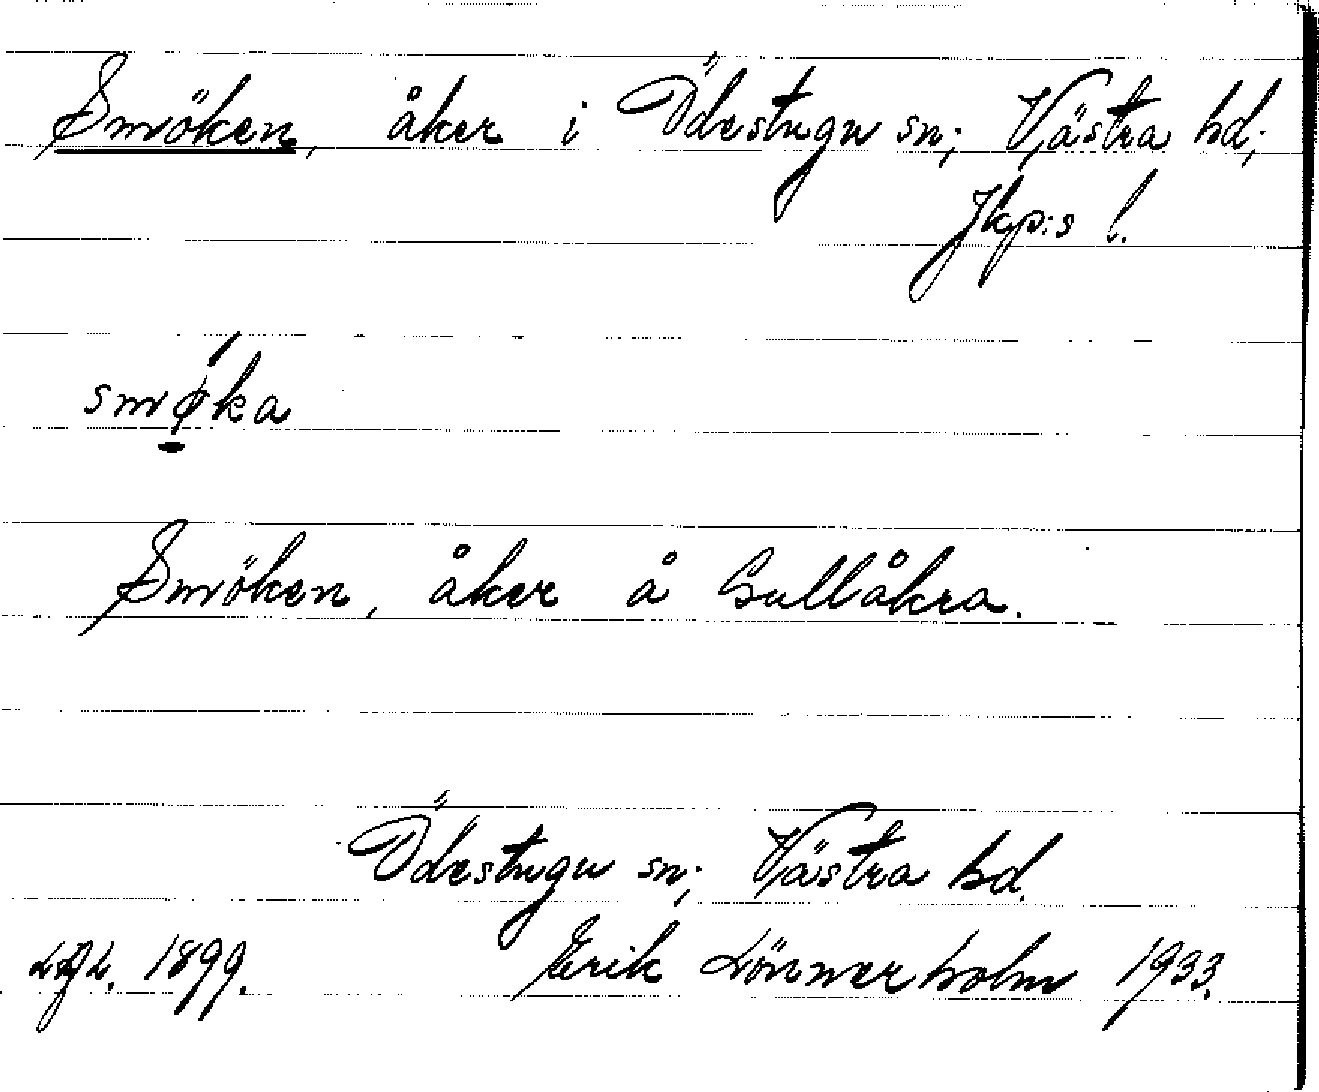 Smöken, åker i Ödestugu sn; Västra hd;
Jkp:s l.
smǿ̣ka
Smöken, åker å Gullåkra.
Ödestugu sn; Västra hd.
1899. Erik Lönnerholm 1933.